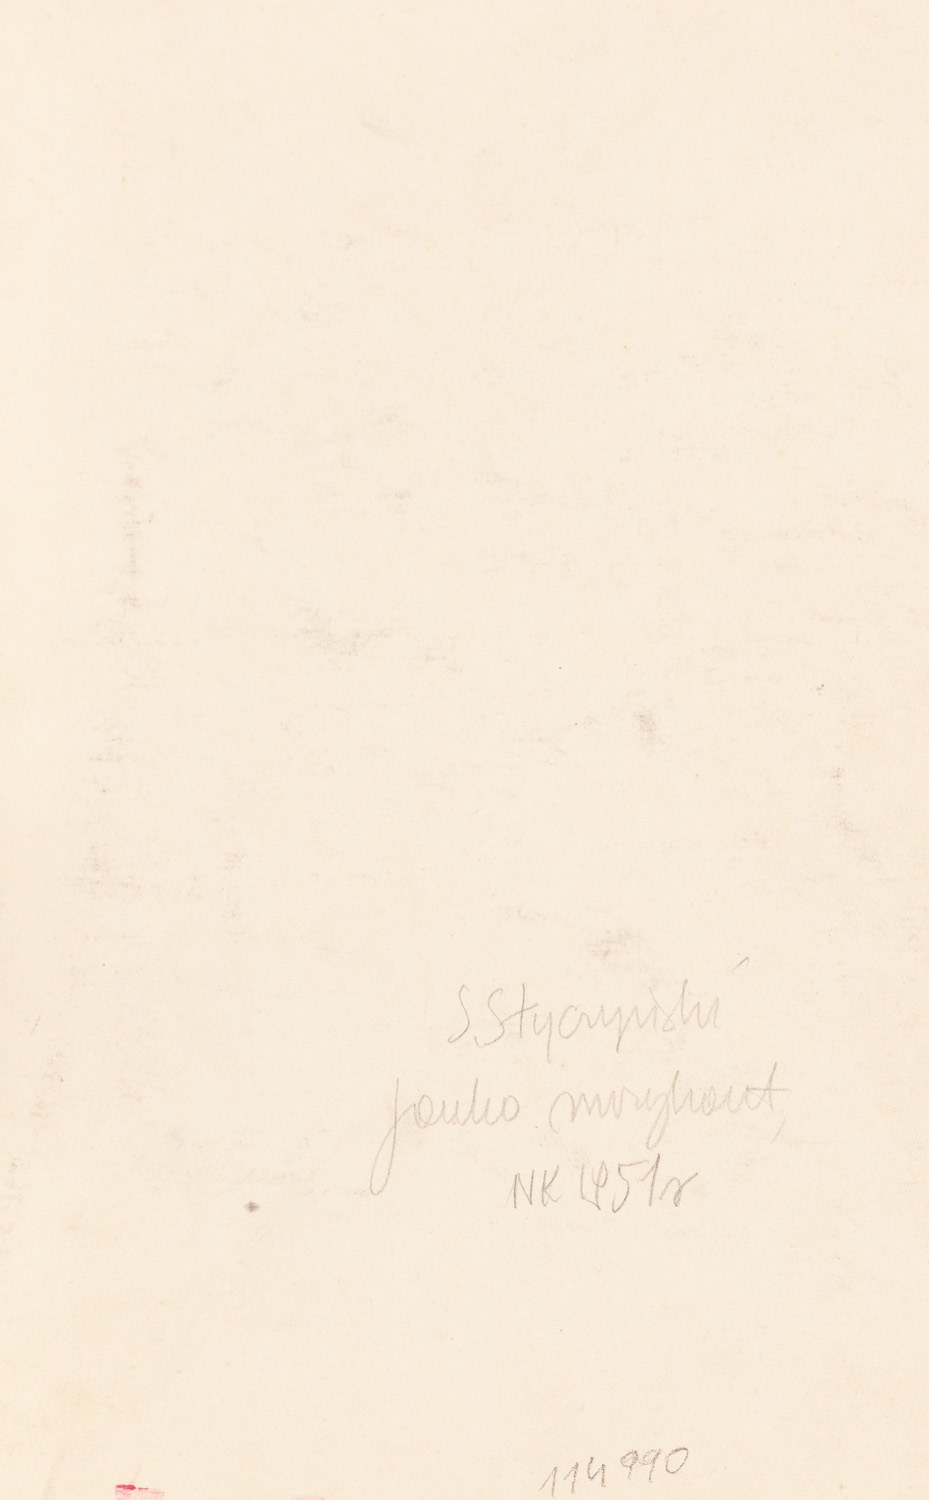 S. Styczyński
Janko muzykant,
NK 1951r
114990